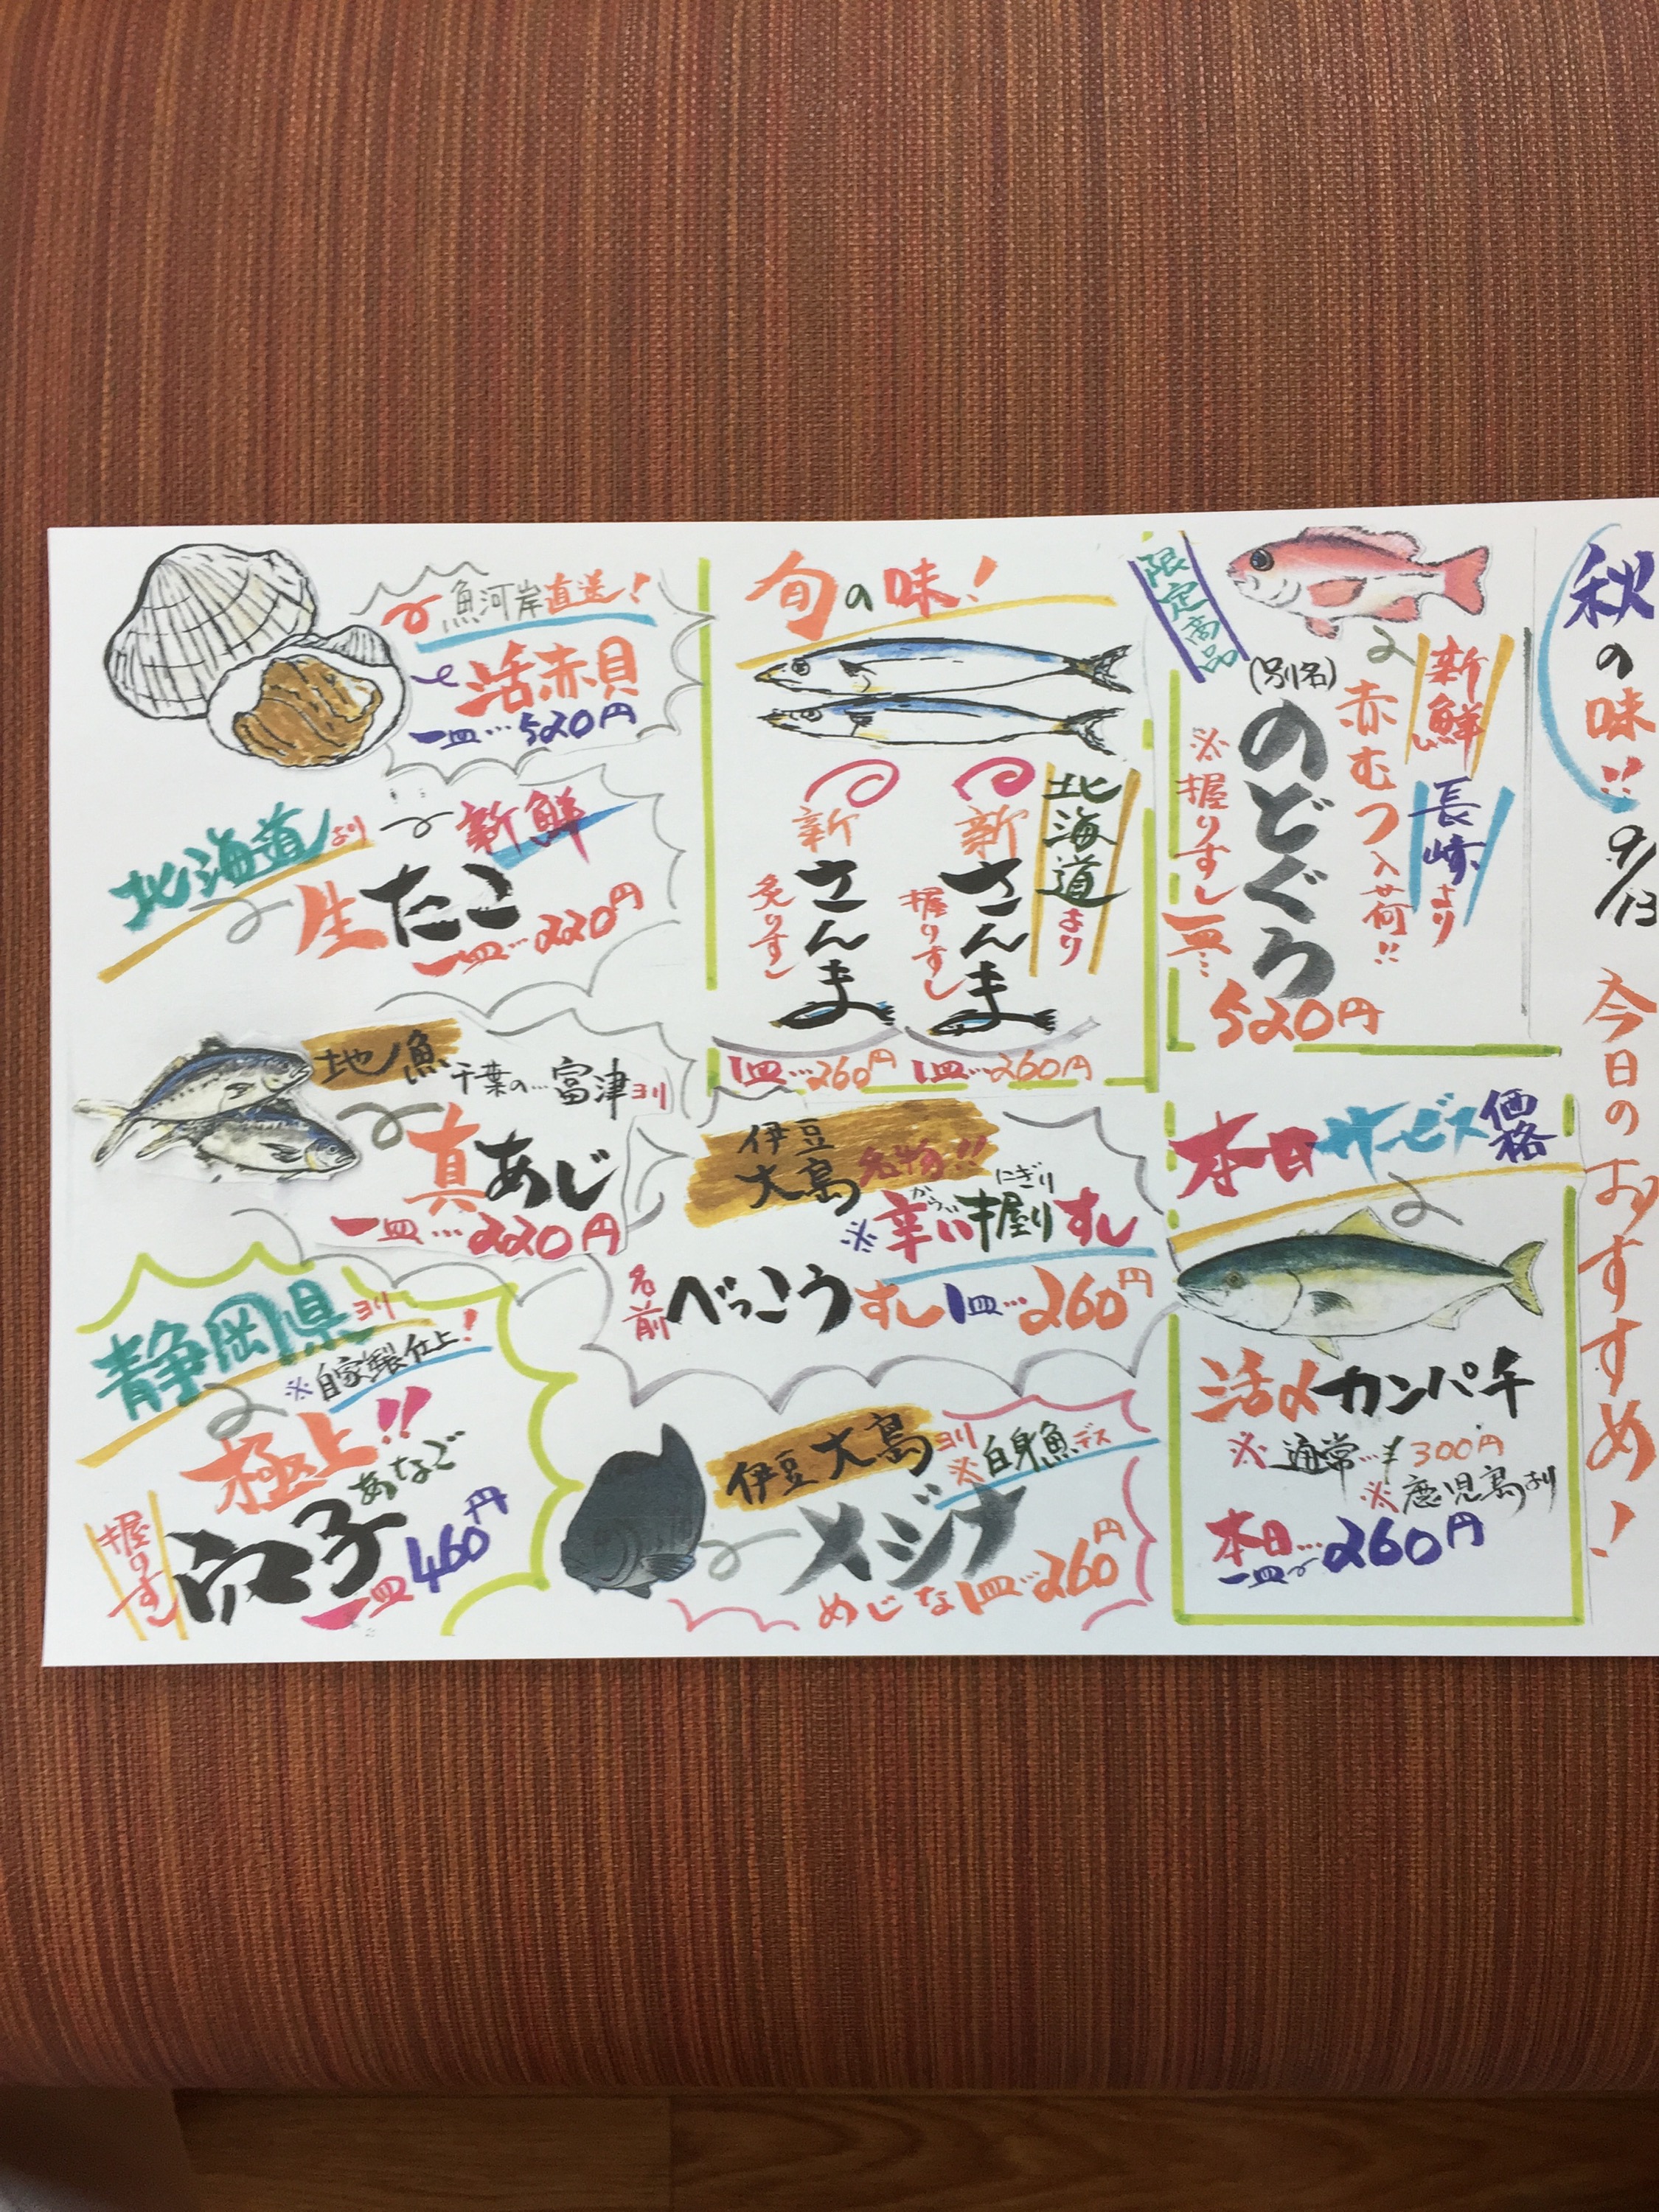 秋の味!! 9/13 今日のおすすめ!
限定商品
新鮮 長崎より
赤むつ入荷!!
(別名)
のどぐろ
※握りすし一皿…
520円
本日サービス価格
活〆カンパチ
※通常…¥300円
※鹿児島より
本日…
一皿 260円
旬の味!
北海道より
新さんま
握りすし
1皿…260円
新さんま
炙りすし
1皿…260円
伊豆大島 名物!!
※辛い握りすし
からい にぎり
名前 べっこうすし1皿…260円
伊豆大島ヨリ
※白身魚デス
メジナ
めじな1皿…260円
魚河岸直送!
活赤貝
一皿…520円
北海道より 新鮮
生たこ
一皿…220円
地ノ魚 千葉の…富津ヨリ
真あじ
一皿…220円
静岡県ヨリ
※自家製仕上!
極上!!
あなご
握りすし 穴子
一皿 460円